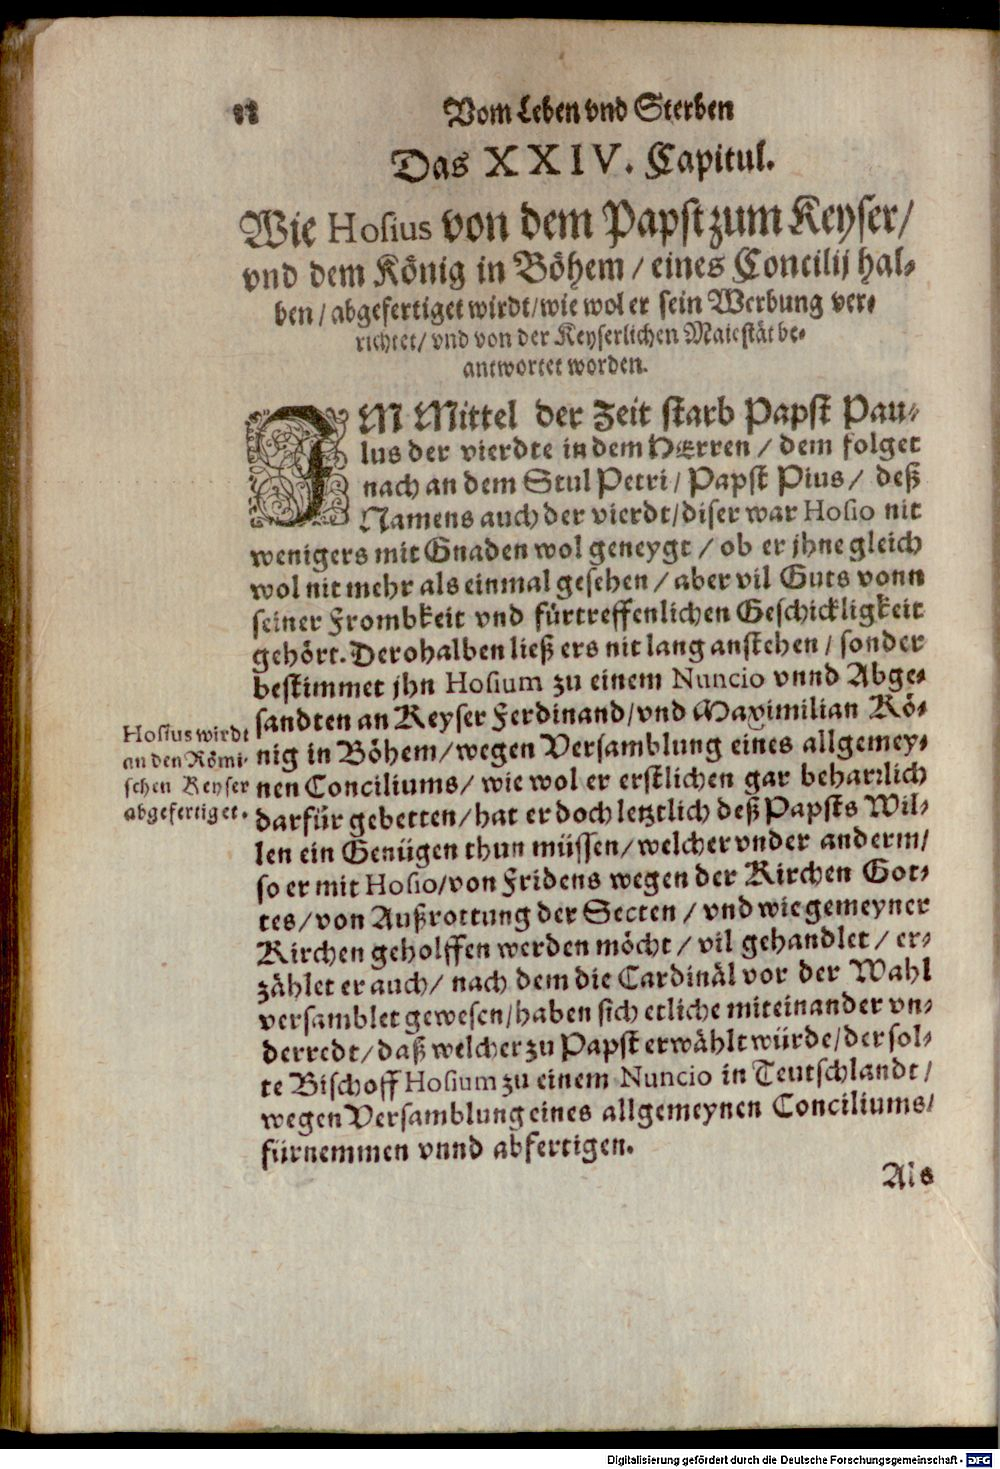 Vom Leben vnd Sterben
Das XXIV. Capitul.
Wie Hosius von dem Papst zum Keyser/
vnd dem König in Böhem / eines Concilij hal-
ben / abgefertiget wirdt / wie wol er sein Werbung ver-
richtet / vnd von der Keyserlichen Maiestät be-
antwortet worden.
IM Mittel der Zeit starb Papst Pau-
lus der vierdte in dem HErren / dem folget
nach an dem Stul Petri / Papst Pius / deß
Namens auch der vierdt / diser war Hosio nit
wenigers mit Gnaden wol geneygt / ob er jhne gleich
wol nit mehr als einmal gesehen / aber vil Guts vonn
seiner Frombkeit vnd fürtreffenlichen Geschickligkeit
gehört. Derohalben ließ ers nit lang anstehen / sonder
bestimmet jhn Hosium zu einem Nuncio vnnd Abge-
sandten an Keyser Ferdinand / vnd Maximilian Kö-
nig in Böhem / wegen Versamblung eines allgemey-
nen Conciliums / wie wol er erstlichen gar beharrlich
darfür gebetten / hat er doch letztlich deß Papsts Wil-
len ein Genügen thun müssen / welcher vnder anderm /
so er mit Hosio / von Fridens wegen der Kirchen Got-
tes / von Außrottung der Secten / vnd wie gemeyner
Kirchen geholffen werden möcht / vil gehandlet / er-
zählet er auch / nach dem die Cardinäl vor der Wahl
versamblet gewesen / haben sich etliche miteinander vn-
derredt / daß welcher zu Papst erwählt würde / der sol-
te Bischoff Hosium zu einem Nuncio in Teutschlandt /
wegen Versamblung eines allgemeynen Conciliums /
fürnemmen vnnd abfertigen.
Als
Hosius wirdt
an den Römi-
schen Keyser
abgefertiget.
Digitalisierung gefördert durch die Deutsche Forschungsgemeinschaft - DFG